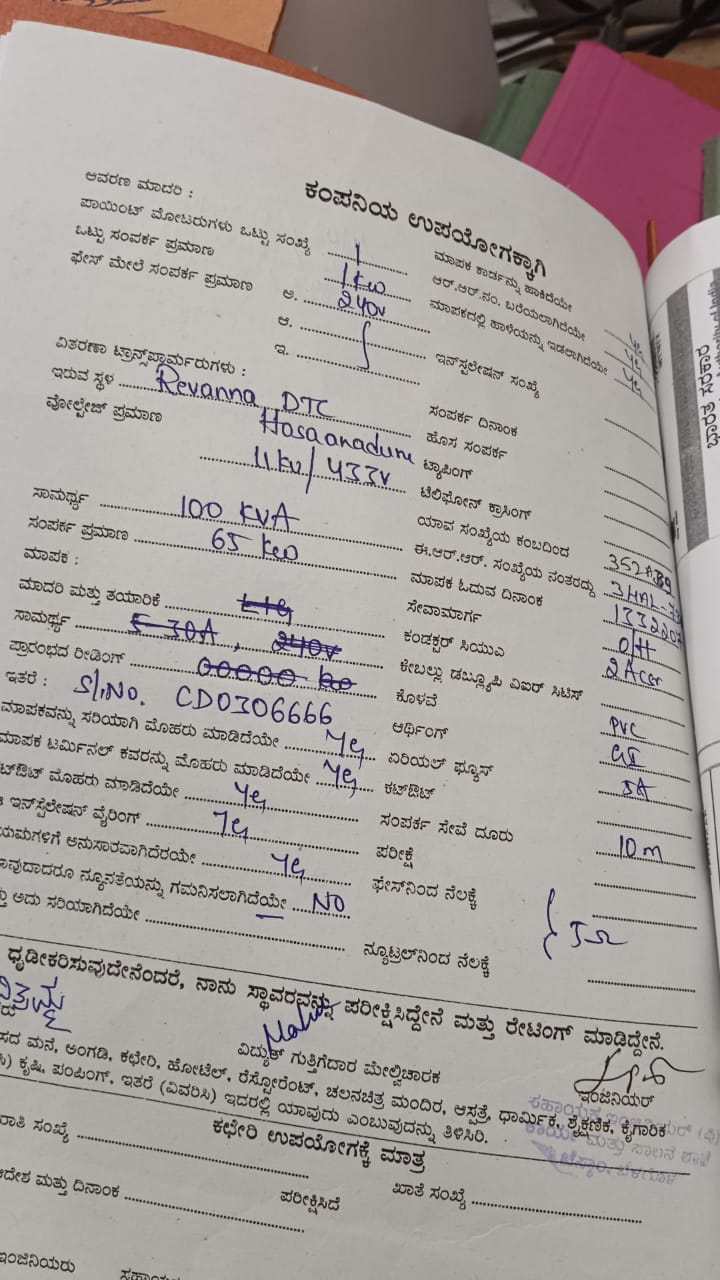 ಕಂಪನಿಯ ಉಪಯೋಗಕ್ಕಾಗಿ
ಆವರಣ ಮಾದರಿ :
ಪಾಯಿಂಟ್ ಮೋಟರುಗಳು ಒಟ್ಟು ಸಂಖ್ಯೆ 1
ಒಟ್ಟು ಸಂಪರ್ಕ ಪ್ರಮಾಣ 1 kw
ಫೇಸ್ ಮೇಲೆ ಸಂಪರ್ಕ ಪ್ರಮಾಣ ಅ. 240v
ಆ.
ಇ.
ವಿತರಣಾ ಟ್ರಾನ್ಸ್‌ಫಾರ್ಮರುಗಳು :
ಇರುವ ಸ್ಥಳ Revanna DTC
ವೋಲ್ಟೇಜ್ ಪ್ರಮಾಣ
11 kv/433v
ಸಾಮರ್ಥ್ಯ 100 KVA
ಸಂಪರ್ಕ ಪ್ರಮಾಣ 65 kw
ಮಾಪಕ :
ಮಾದರಿ ಮತ್ತು ತಯಾರಿಕೆ L+G
ಸಾಮರ್ಥ್ಯ 5-30A, 240v
ಪ್ರಾರಂಭದ ರೀಡಿಂಗ್ 00000
ಇತರೆ : Sl.No. CD0306666
ಮಾಪಕವನ್ನು ಸರಿಯಾಗಿ ಮೊಹರು ಮಾಡಿದೆಯೇ yes
ಮಾಪಕ ಟರ್ಮಿನಲ್ ಕವರನ್ನು ಮೊಹರು ಮಾಡಿದೆಯೇ yes
ಮೊಹರು ಮಾಡಿದೆಯೇ yes
ಇನ್‌ಸ್ಟಲೇಷನ್ ವೈರಿಂಗ್ yes
ಅನುಸಾರವಾಗಿದೆಯೇ yes
ನ್ಯೂನತೆಯನ್ನು ಗಮನಿಸಲಾಗಿದೆಯೇ NO
ಅದು ಸರಿಯಾಗಿದೆಯೇ
ಮಾಪಕ ಕಾರ್ಡನ್ನು ಹಾಕಿದೆಯೇ yes
ಆರ್.ಆರ್.ನಂ. ಬರೆಯಲಾಗಿದೆಯೇ yes
ಮಾಪಕದಲ್ಲಿ ಹಾಳೆಯನ್ನು ಇಡಲಾಗಿದೆಯೇ yes
ಇನ್‌ಸ್ಟಲೇಷನ್ ಸಂಖ್ಯೆ
ಸಂಪರ್ಕ ದಿನಾಂಕ
ಹೊಸ ಸಂಪರ್ಕ
ಟ್ಯಾಪಿಂಗ್
ಟೆಲಿಫೋನ್ ಕ್ರಾಸಿಂಗ್
ಯಾವ ಸಂಖ್ಯೆಯ ಕಂಬದಿಂದ
ಈ.ಆರ್.ಆರ್. ಸಂಖ್ಯೆಯ ನಂತರದ್ದು
ಮಾಪಕ ಓದುವ ದಿನಾಂಕ
ಸೇವಾಮಾರ್ಗ O/H
ಕಂಡಕ್ಟರ್ ಸಿಯುವಿ
ಕೇಬಲ್ಲು ಡಬ್ಲ್ಯೂಪಿ ವಿಐಆರ್ ಸಿಟಿಸ್
ಕೊಳವೆ PVC
ಅರ್ಥಿಂಗ್ GI
ಏರಿಯಲ್ ಫ್ಯೂಸ್ 5A
ಕಟ್‌ಔಟ್
ಸಂಪರ್ಕ ಸೇವೆ ದೂರು 10 m
ಪರೀಕ್ಷೆ
ಫೇಸ್‌ನಿಂದ ನೆಲಕ್ಕೆ
ನ್ಯೂಟ್ರಲ್‌ನಿಂದ ನೆಲಕ್ಕೆ
ಧೃಡೀಕರಿಸುವುದೇನೆಂದರೆ, ನಾನು ಸ್ಥಾವರವನ್ನು ಪರೀಕ್ಷಿಸಿದ್ದೇನೆ ಮತ್ತು ರೇಟಿಂಗ್ ಮಾಡಿದ್ದೇನೆ.
ವಿದ್ಯುತ್ ಗುತ್ತಿಗೆದಾರ ಮೇಲ್ವಿಚಾರಕ
ಇಂಜಿನಿಯರ್
ಮನೆ, ಅಂಗಡಿ, ಕಛೇರಿ, ಹೋಟೆಲ್, ರೆಸ್ಟೋರೆಂಟ್, ಚಲನಚಿತ್ರ ಮಂದಿರ, ಆಸ್ಪತ್ರೆ, ಧಾರ್ಮಿಕ, ಶೈಕ್ಷಣಿಕ, ಕೈಗಾರಿಕ
ಕೃಷಿ, ಪಂಪಿಂಗ್, ಇತರೆ (ವಿವರಿಸಿ) ಇದರಲ್ಲಿ ಯಾವುದು ಎಂಬುವುದನ್ನು ತಿಳಿಸಿರಿ.
ಕಛೇರಿ ಉಪಯೋಗಕ್ಕೆ ಮಾತ್ರ
ಸಂಖ್ಯೆ
ಖಾತೆ ಸಂಖ್ಯೆ
ಆದೇಶ ಮತ್ತು ದಿನಾಂಕ
ಪರೀಕ್ಷಿಸಿದೆ
ಇಂಜಿನಿಯರು
ಭಾರತ ಸರಕಾರ